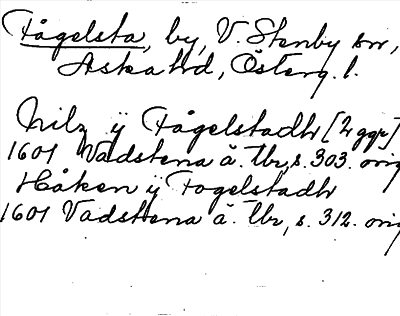 Fågelsta, by, V. Stenby sn,
Aska hd, Österg. l.
Nilz ÿ Fågelstadh [2 ggr]
1601 Vadstena ä. tbr, s. 303. orig
Håken ÿ Fogelstadh
1601 Vadstena ä. tbr, s. 312. orig